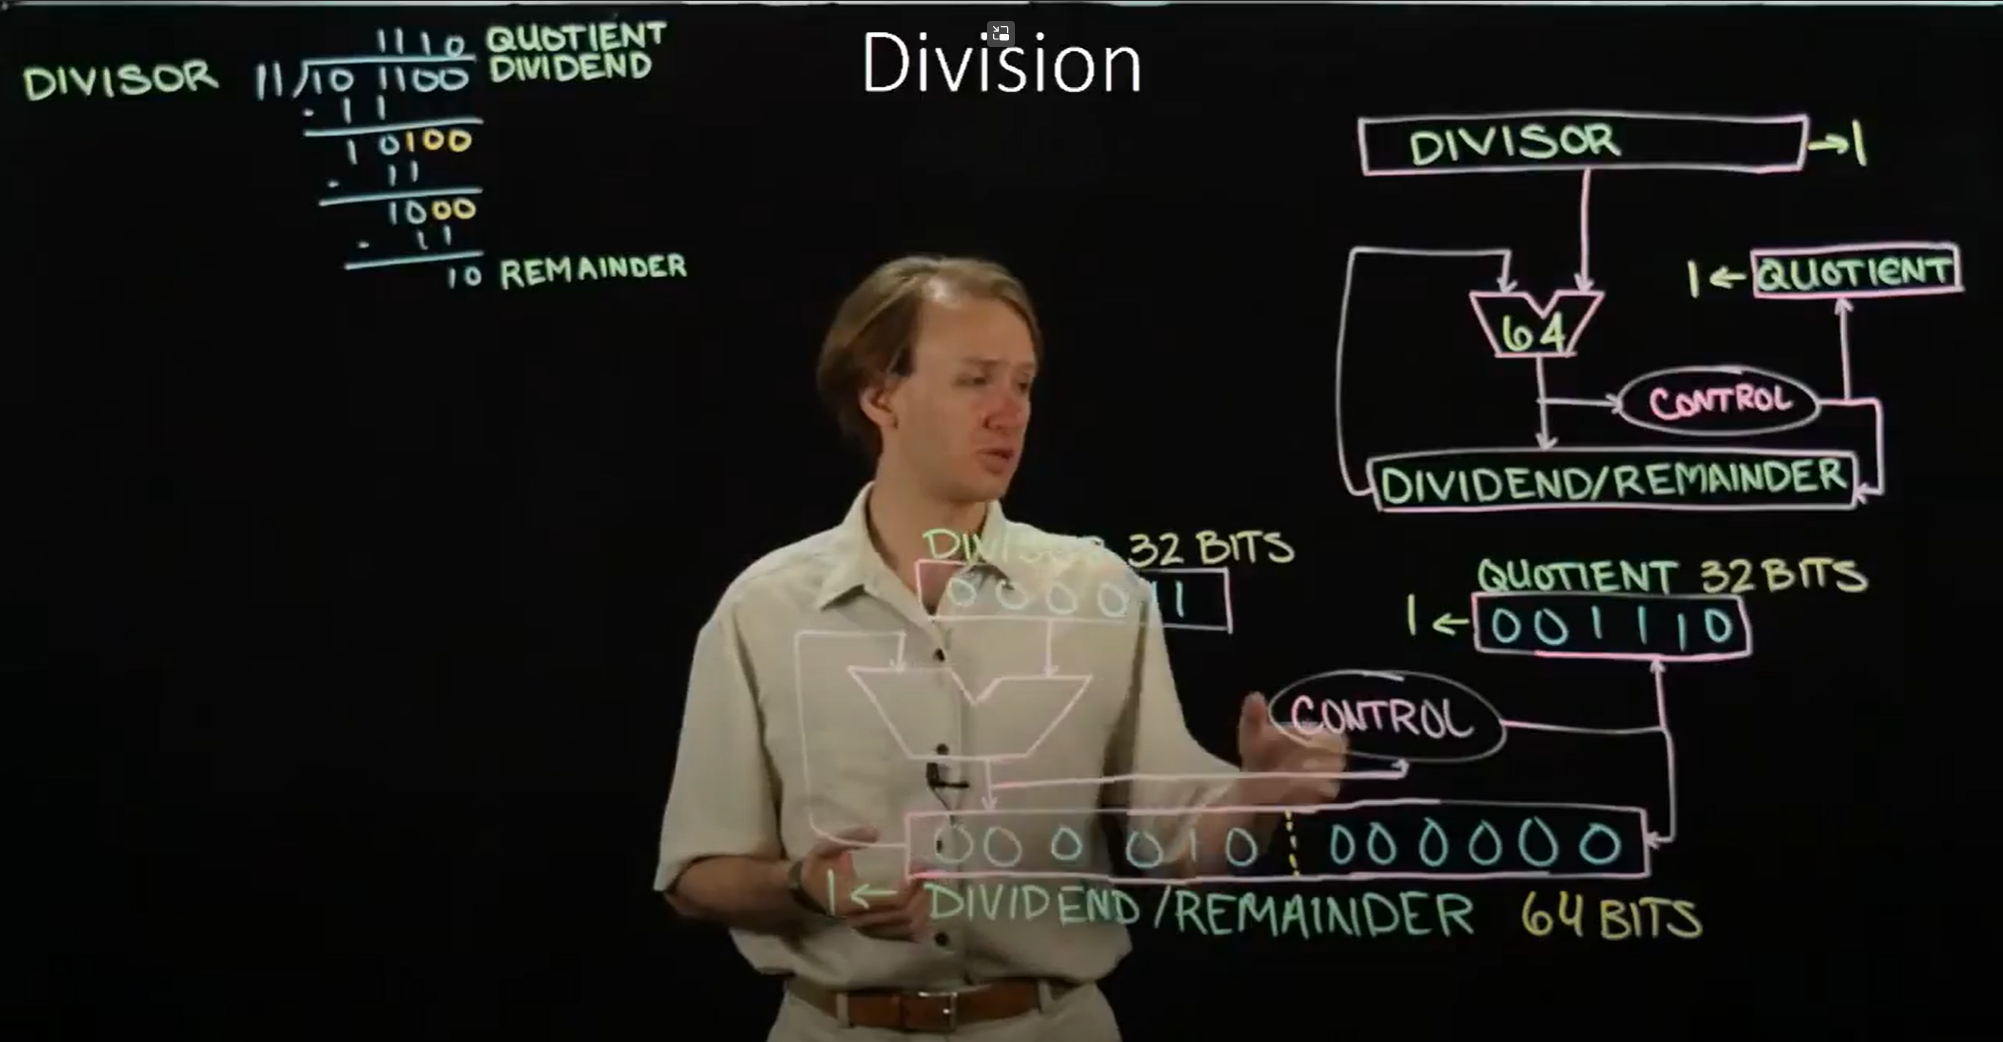 Division
1110 QUOTIENT
DIVISOR 11)10 1100 DIVIDEND
- 1 1
1 0100
- 11
1000
- 11
10 REMAINDER
DIVISOR →1
1← QUOTIENT
64
CONTROL
DIVIDEND/REMAINDER
DIVISOR 32 BITS
0 0 0 0 1 1
QUOTIENT 32 BITS
1← 0 0 1 1 1 0
CONTROL
0 0 0 0 1 0 0 0 0 0 0 0
1← DIVIDEND/REMAINDER 64 BITS